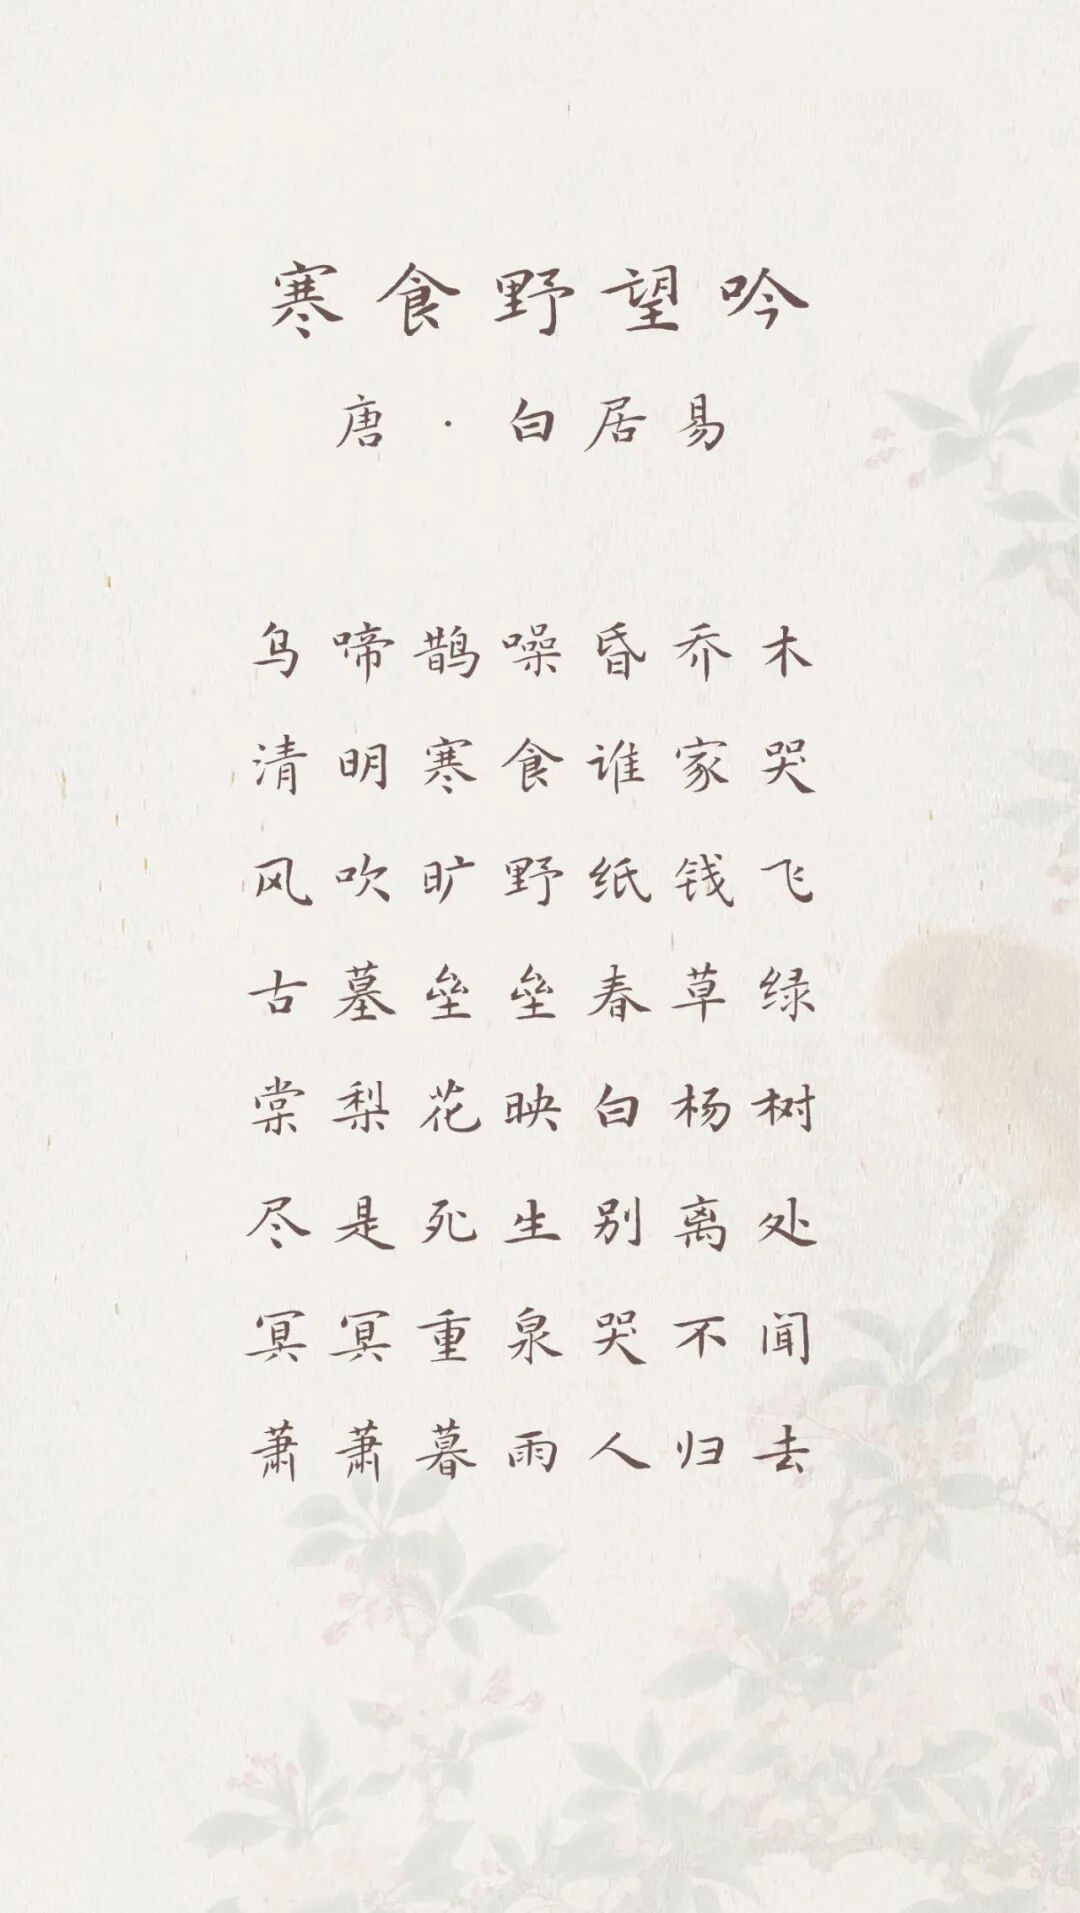 寒食野望吟
唐·白居易
乌啼鹊噪昏乔木
清明寒食谁家哭
风吹旷野纸钱飞
古墓垒垒春草绿
棠梨花映白杨树
尽是死生别离处
冥冥重泉哭不闻
萧萧暮雨人归去